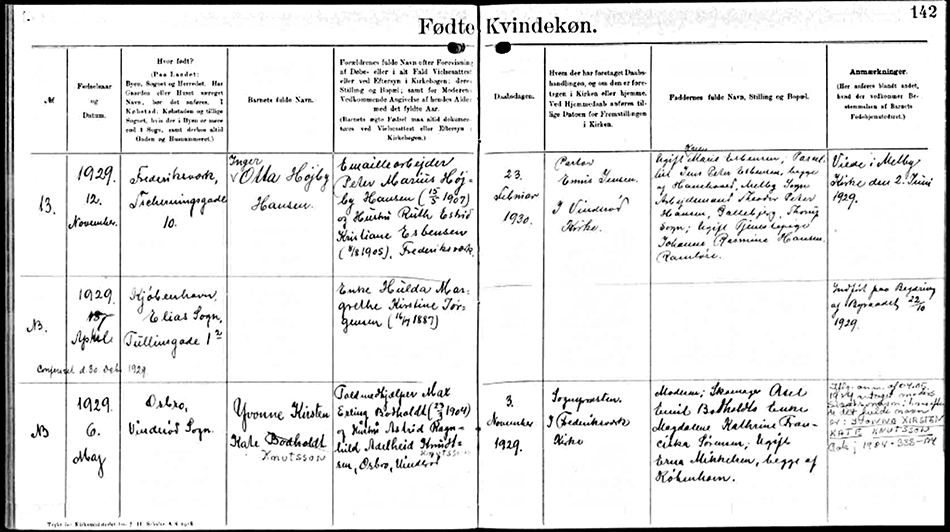 142
Fødte Kvindekøn.
№
Fødselsaar
og
Datum.
Hvor født?
(Paa Landet:
Byen, Sognet og Herredet. Har
Gaarden eller Huset særeget
Navn, bør det anføres. I
Købstad: Købstaden og tillige
Sognet, hvis der i Byen er mere
end 1 Sogn, samt derhos altid
Gaden og Husnummeret.)
Barnets fulde Navn.
Forældrenes fulde Navn efter Forevisning
af Døbe- eller i alt Fald Vielsesattest
eller ved Eftersyn i Kirkebogen; deres
Stilling og Bopæl; samt for Moderens
Vedkommende Angivelse af hendes Alder
med det fyldte Aar.
(Barnets ægte Fødsel maa altid dokumen-
teres ved Vielsesattest eller Eftersyn i
Kirkebogen.)
Daabsdagen.
Hvem der har foretaget Daabs-
handlingen, og om den er fore-
tagen i Kirken eller hjemme.
Ved Hjemmedaab anføres til-
lige Datoen for Fremstillingen
i Kirken.
Faddernes fulde Navn, Stilling og Bopæl.
Anmærkninger.
(Her anføres blandt andet,
hvad der vedkommer Be-
stemmelsen af Barnets
Fødehjemstedsret.)
13.
1929.
12.
November.
Frederiksværk,
Tscherningsgade
10.
Inger
Otta Højby
Hansen.
Emaillearbejder
Peter Marius Høj-
by Hansen (15/3 1907)
og Hustru Ruth Estrid
Kristiane Esbensen
1905), Frederiksværk.
23.
Februar
1930.
Pastor
Ennis Jensen.
I Vinderød
Kirke.
Karen
Ugift Marie Esbensen, Parcel-
list Jens Peter Esbensen, begge
af Melby Sogn
Arbejdsmand Theodor Peter
Hansen,
Sogn; Ugift Tjenestepige
Johanne Rasmine Hansen,
Ramløse.
Viede i Melby
Kirke den 2. Juni
1929.
NB.
1929.
April
Kjøbenhavn,
Elias Sogn,
Tullinsgade 1²
Enke Hulda Mar-
grethe Kirstine Jør-
gensen (16/ 1887)
Indført paa Begæring
af Byraadet 22/10
1929.
Confereret d. 30. Oct. 1929
NB
1929.
6.
Maj
Osbro,
Vinderød Sogn.
Yvonne Kirsten
Kate Bodholdt
Knutsson
Toldmedhjælper Max
Erling Bodholdt (27/3 1904)
og Hustru Astrid Ragn-
hild Adelheid Knudt-
Knutsson
sen, Osbro, Vinderød
3.
November
1929.
Sognepræsten.
I Frederiksværk
Kirke
Moderen; Skomager Axel
Emil Bodholdts Enke
Magdalene Kathrine Fran-
ciska Sørensen; Ugift
Erna Mikkelsen, begge af
København.
YVONNE KIRSTEN
KATE KNUTSSON
Trykt for Kirkeministeriet hos J. H. Schultz A/S